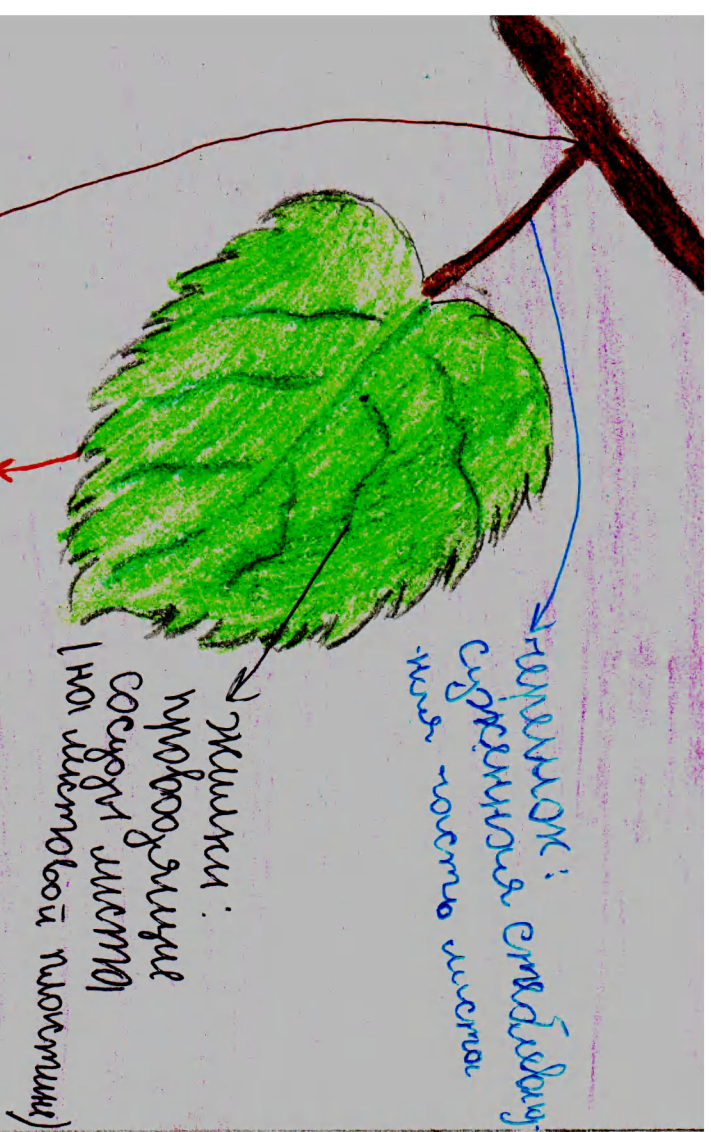 черешок:
суженная стебелевид-
ная часть листа
жилки:
проводящие
сосуды листа
(на листовой пластине)